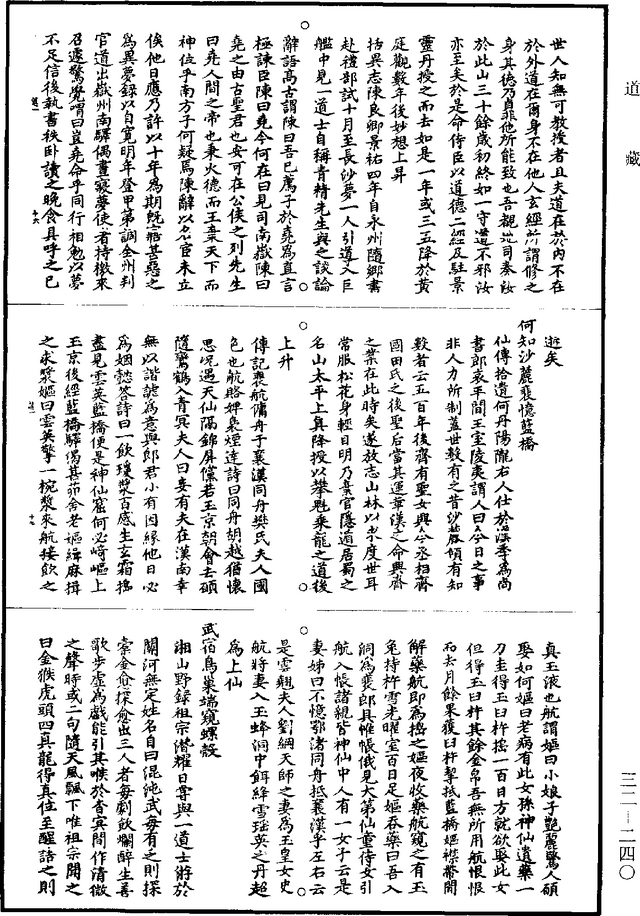 道藏
世人知無可教授者且夫道在於內不在
於外道在爾身不在他人玄經所謂修之
身其德乃真非他所能致也吾觀地司奏汝
於此山三十餘歲初終如一守道不邪汝
亦至矣於是命侍臣以道德二經及駐景
靈丹授之而去如是一年或三五降於黃
庭觀數年後妙想上昇
括異志陳良卿景祐四年自永州隨鄉書
赴禮部試十月至長沙夢一人引導入巨
艦中見一道士自稱青精先生與之談論
辭語高古謂陳曰吾已薦子於堯為直言
極諫臣陳曰堯今何在曰見司南嶽陳曰
堯之由古聖君也安可在公侯之列先生
曰堯人間之帝也秉火德而王棄天下而
神位乎南方子何疑焉陳辭以名宦未立
俟他日應乃許以十年為期既寤甚惡之
為異夢錄以自寬明年登甲第調全州判
官道出嶽州南驛偶晝寢夢使者持檄來
召遽驚覺喟曰豈堯命乎同行相勉以夢
不足信後執書秩卧讀之晚食具呼之已
逝矣
何知沙麓裴憶藍橋
仙傳拾遺何丹陽隴右人仕於漢季為尚
書郎哀平間王室陵夷謂人曰今日之事
非人力所制蓋世數有之昔沙麓傾有知
數者云五百年後齊有聖女興今丞相齊
國田氏之後聖后當其運革漢之命興齊
之業在此時矣遂放志山林以求度世耳
常服松花身輕目明乃棄官隱遁居蜀之
名山太平上真降授以攀魁乘龍之道後
上升
傳記裴航傭舟于襄漢同舟樊氏夫人國
色也航賂婢裊煙達詩曰同舟胡越猶懷
思況遇天仙隔錦屏儻若玉京朝會去碩
隨鸞鶴入青冥夫人曰妾有夫在漢南幸
無以諧謔為意與郎君小有因緣他日必
為姻懿答詩曰一飲瓊漿百感生玄霜搗
盡見雲英藍橋便是神仙窟何必崎嶇上
玉京後經藍橋驛偶甚茆舍老嫗緝麻揖
之求漿嫗曰雲英擎一椀漿來航接飲之
真玉液也航謂嫗曰小娘子艷麗驚人碩
娶如何嫗曰老病有此女孫神仙遺藥一
刀圭得玉臼杵搗一百日方就欲娶此女
但得玉臼杵其餘金帛吾無所用航恨恨
而去月餘果獲臼杵挈抵藍橋嫗襟帶間
解藥航即為搗之嫗夜收藥航窺之有玉
兔持杵雪光曜室百日足嫗吞藥曰吾入
洞為裴郎具帷帳俄見大第仙童侍女引
航入帳諸親皆神仙中人有一女子云是
妻姊曰不憶鄂渚同舟抵襄漢乎左右云
是雲翹夫人劉綱天師之妻為玉皇女史
航將妻入玉峰洞中餌絳雪瑤英之丹超
為上仙
武宿鳥巢端窺螺殼
湘山野錄祖宗潛耀日嘗與一道士游於
關河無定姓名自曰混沌武每有之則探
索金愈探愈出三人者每劇飲爛醉生善
歌步虛為戲能引其喉於杳冥間作清徵
之聲時或二句隨天風飄下唯祖宗聞之
曰金猴虎頭四真龍得真位至醒詰之則
三二—二四〇